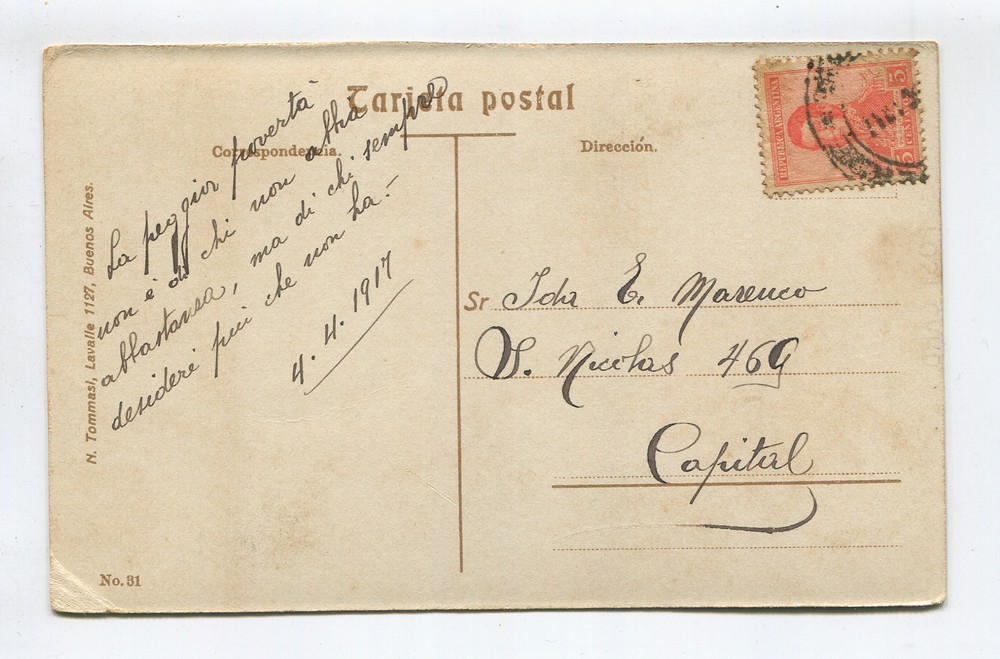 Tarjeta postal
Correspondencia.
Dirección.
REPUBLICA ARGENTINA
5
CENTAVOS
5
La peggior povertà
non è di chi non abbia
abbastanza, ma di chi sempre
desideri più che non ha.-
4.4.1917
Sr Ida E. Marenco
S. Nicolas 469
Capital
N. Tommasi, Lavalle 1127, Buenos Aires.
No. 31